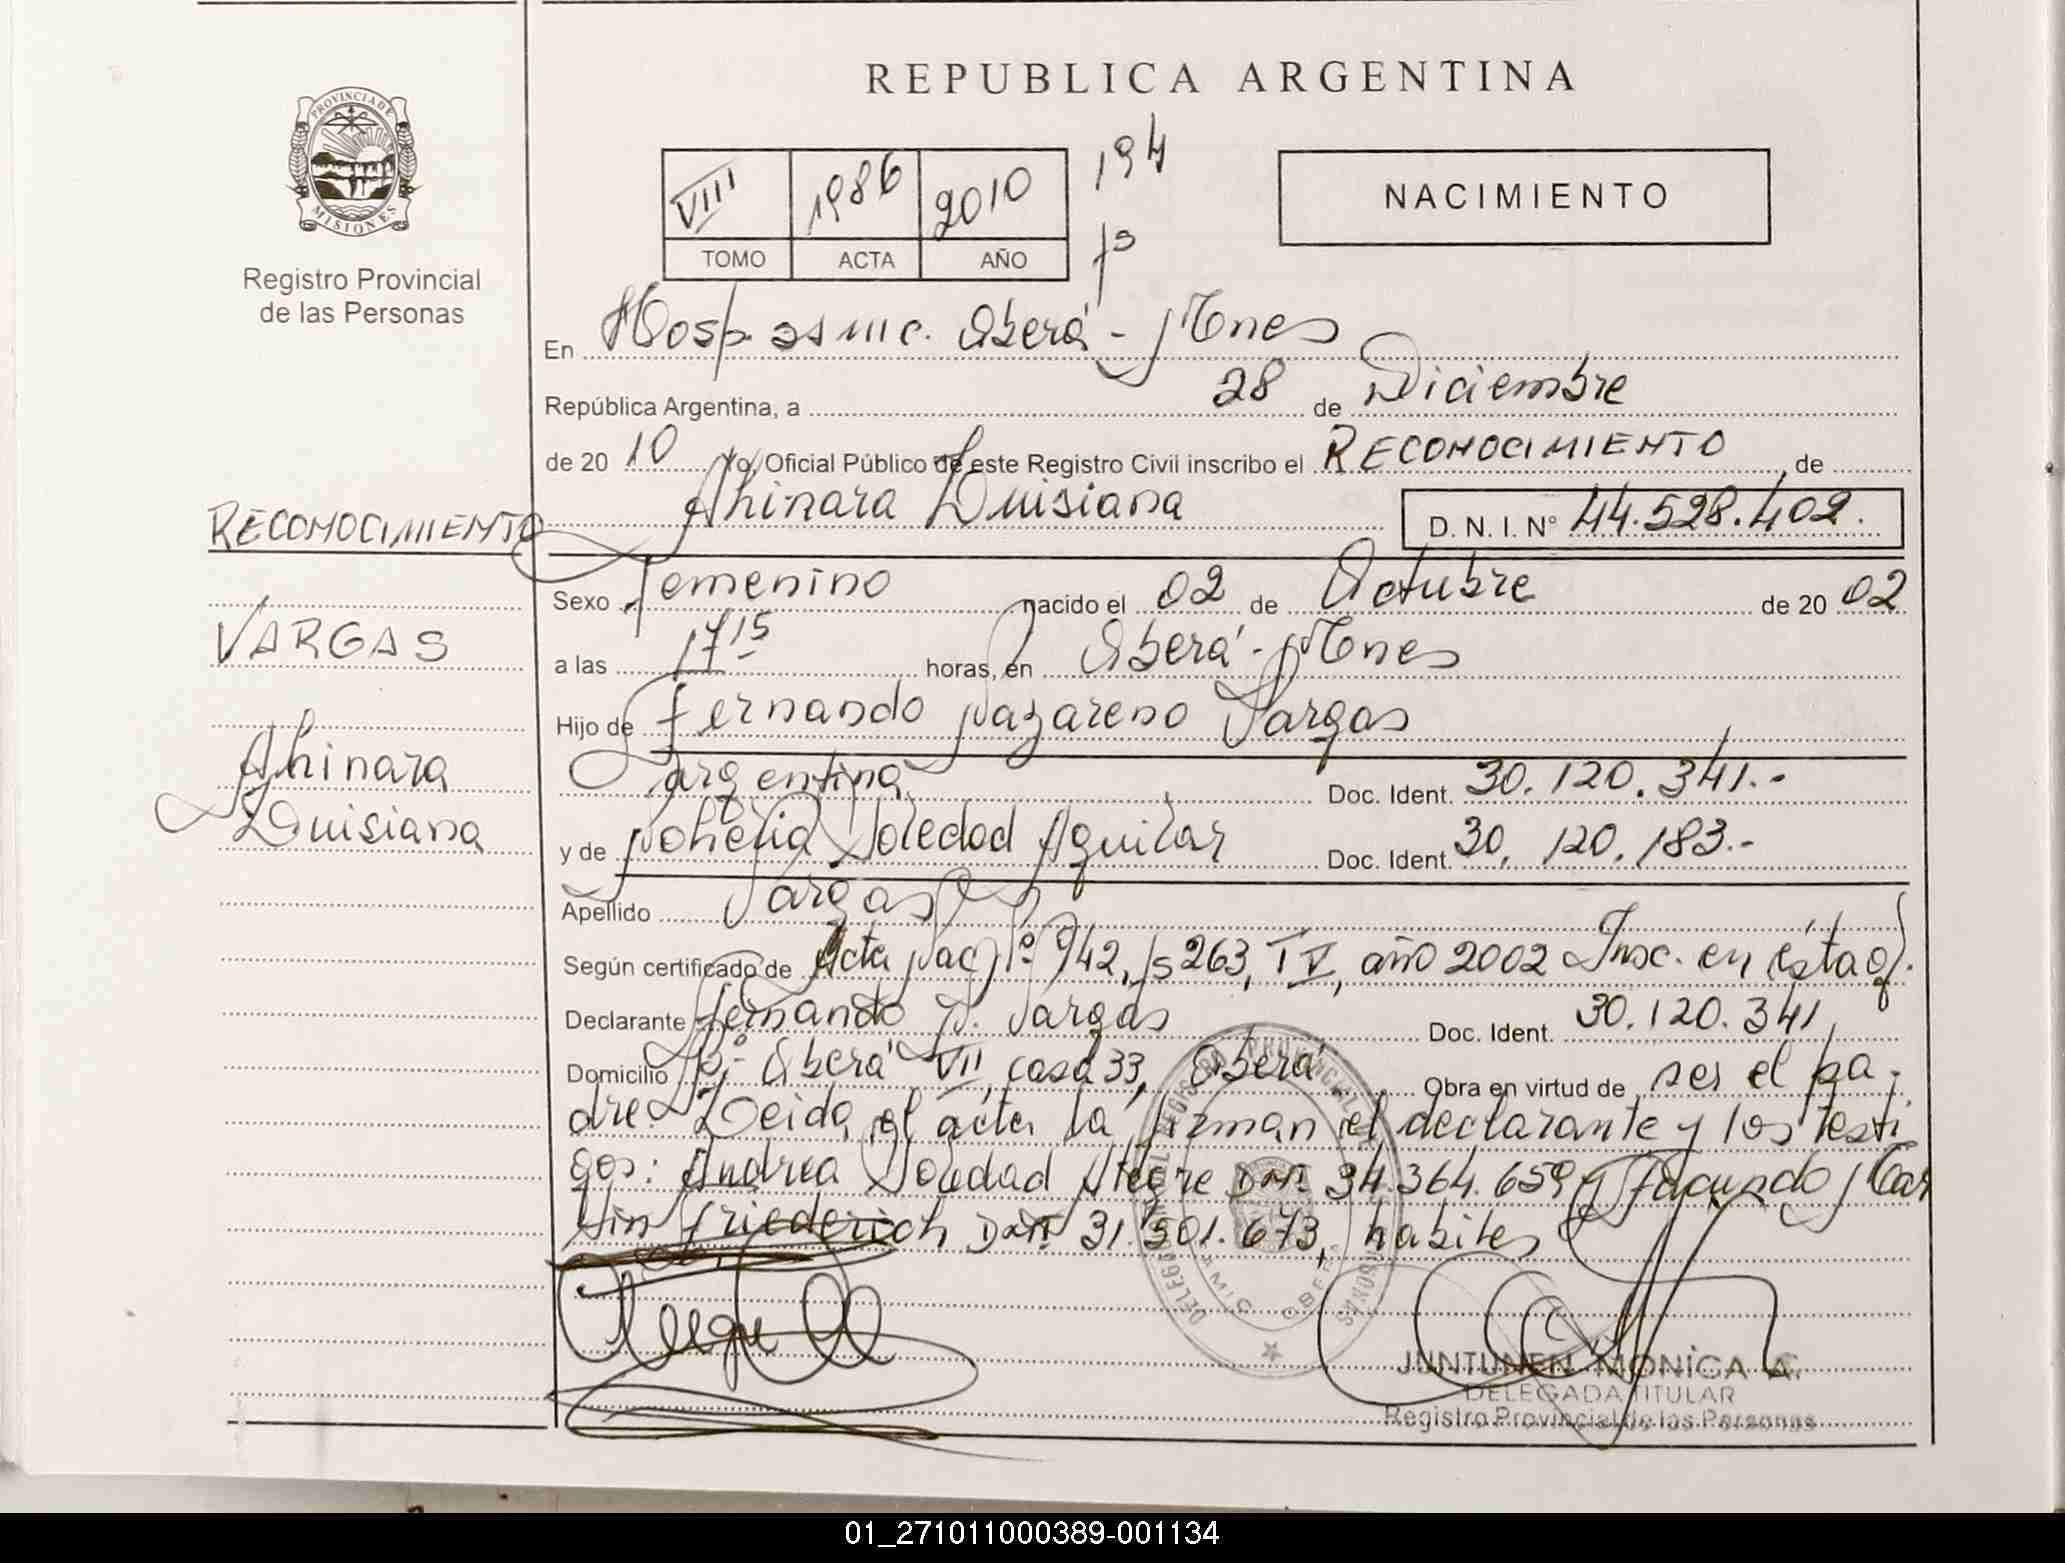 REPUBLICA ARGENTINA
PROVINCIA DE
MISIONES
Registro Provincial
de las Personas
VIII 1986 2010 194
TOMO ACTA AÑO fº
NACIMIENTO
En Hosp. SAMIC. Oberá - Mnes
República Argentina, a 28 de Diciembre
de 20 10 Yo, Oficial Público de este Registro Civil inscribo el RECONOCIMIENTO, de
Ahinara Luisiana D. N. I. Nº 44.528.402.
RECONOCIMIENTO
Sexo Femenino nacido el 02 de Octubre de 20 02
VARGAS
a las 17 15 horas, en Oberá - Mnes
Hijo de Fernando Nazareno Vargas
Ahinara
Luisiana
argentina Doc. Ident. 30.120.341.-
y de Soledad Aguilar Doc. Ident. 30.120.183.-
Apellido Vargas
Según certificado de Acta Nac. Nº 942, fs 263, T V, año 2002 Insc. en ésta of.
Declarante Fernando N. Vargas Doc. Ident. 30.120.341,
Domicilio Bº Oberá VII, casa 33, Oberá. Obra en virtud de ser el pa-
dre. Leida el acta la firman el declarante y los testi
gos: Andrea Soledad Alegre DNI 34.364.659 y Facundo Mar
tin Friederich DNI 31.301.673, habiles
JUNTUNEN MONICA A.
DELEGADA TITULAR
Registro Provincial de las Personas
01_271011000389-001134